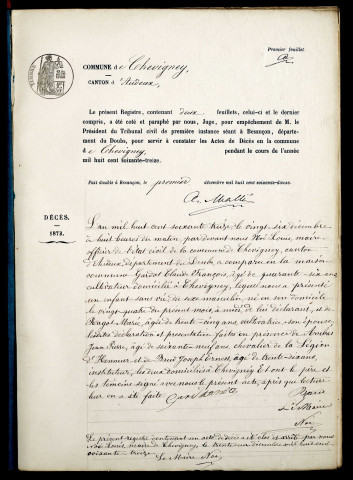 Premier feuillet
COMMUNE de Chevigney,
CANTON d'Audeux,
Le présent Registre, contenant deux feuillets, celui-ci et le dernier
compris, a été coté et paraphé par nous, Juge, pour empêchement de M. le
Président du Tribunal civil de première instance séant à Besançon, départe-
ment du Doubs, pour servir à constater les Actes de Décès en la commune
de Chevigney, pendant le cours de l'année
mil huit cent soixante-treize.
Fait double à Besançon, le premier décembre mil huit cent soixante-douze.
DÉCÈS.
1873.
L'an mil huit cent soixante treize le vingt six décembre
à huit heures du matin, par devant nous Noi Louis, maire
officier de l'état civil de la commune de Chevigney, canton
d'Audeux, département du Doubs, a comparu en la maison
commune Claude François, âgé de quarante-six ans
cultivateur domicilié à Chevigney, lequel nous a présenté
un enfant sans vie, du sexe masculin, né en son domicile
le vingt quatre du présent mois, à midi, de lui déclarant, et de
Marie, âgée de trente-cinq ans, cultivatrice son épouse,
lesdites déclaration et présentation faites en présence de
Jean Pierre, âgé de soixante neuf ans, chevalier de la Légion
d'Honneur et de Joseph Ernest, âgé de trente-six ans,
instituteur, les deux domiciliés à Chevigney Et ont le père et
les témoins signé avec nous le présent acte, après que lecture
leur en a été faite
Le Maire
Noi
Le présent registre contenant un acte de décès a été clos et arrêté par nous
Noi Louis, maire de Chevigney, le trente un décembre mil huit cent
soixante-treize. Le Maire Noi